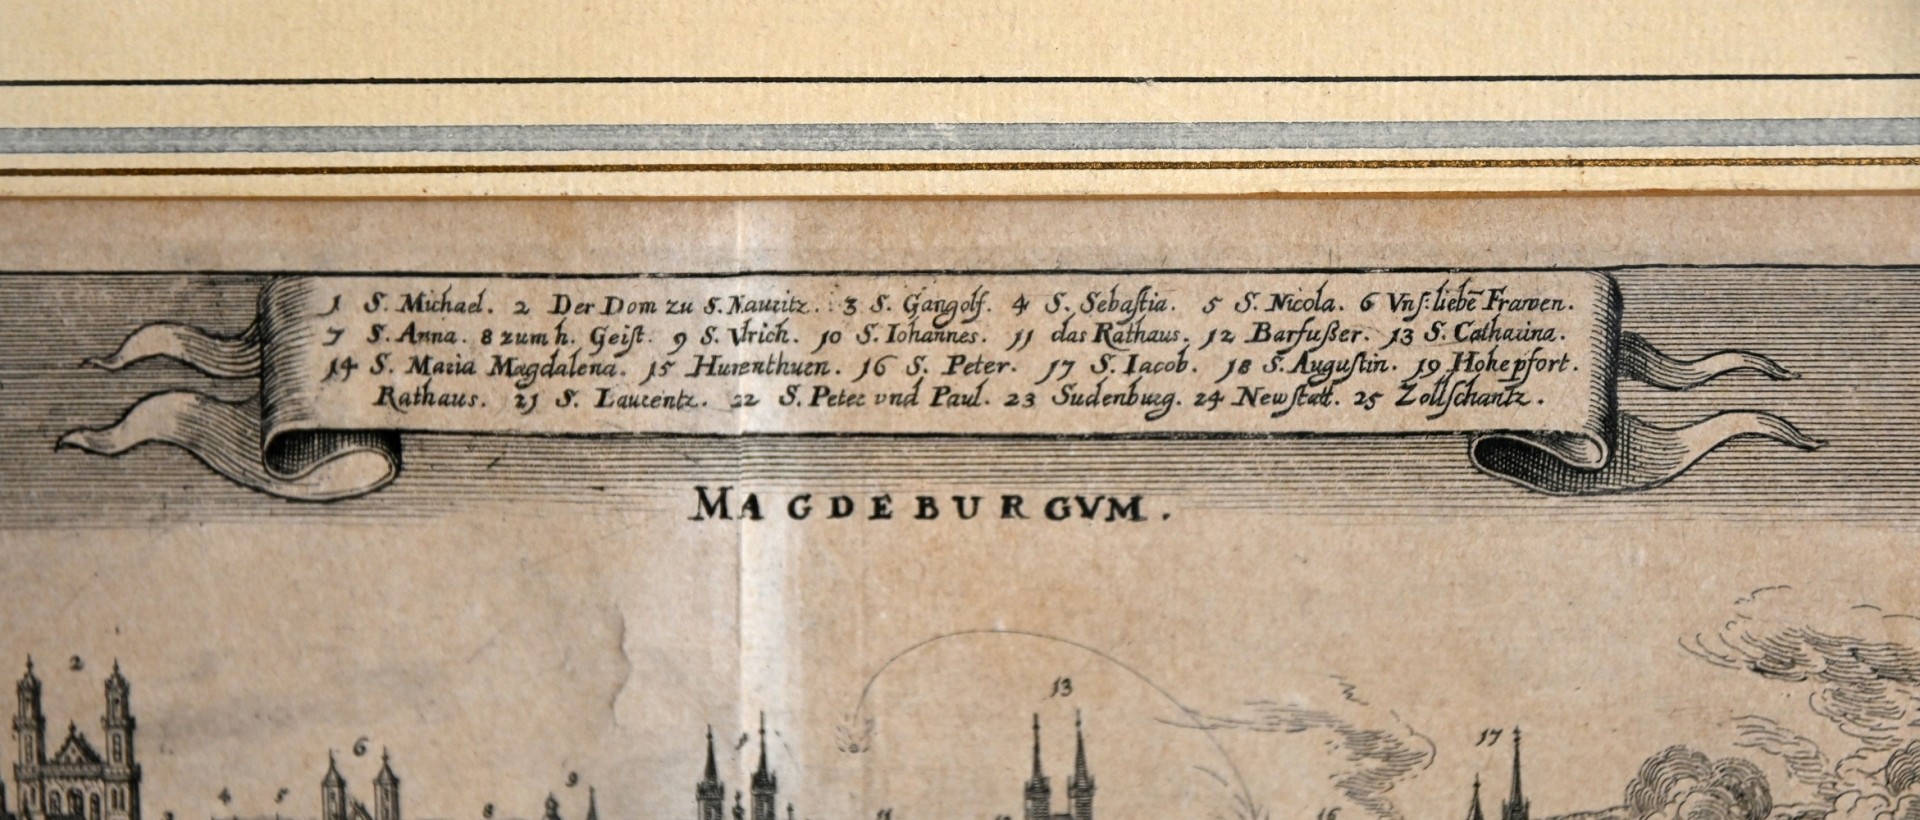 1 S. Michael. 2 Der Dom zu S. Mauritz. 3 S. Gangolf. 4 S. Sebastia. 5 S. Nicola. 6 Vns: liebē Frawen.
7 S. Anna. 8 zum h. Geist. 9 S. Vlrich. 10 S. Iohannes. 11 das Rathaus. 12 Barfußer. 13 S. Catharina.
14 S. Maria Magdalena. 15 Hurenthuen. 16 S. Peter. 17 S. Iacob. 18 S. Augustin. 19 Hohepfort.
Rathaus. 21 S. Laurentz. 22 S. Peter vnd Paul. 23 Sudenburg. 24 Newstatt. 25 Zollschantz.
MAGDEBURGVM.
2
13
6
17
9
4
5
8
11
16